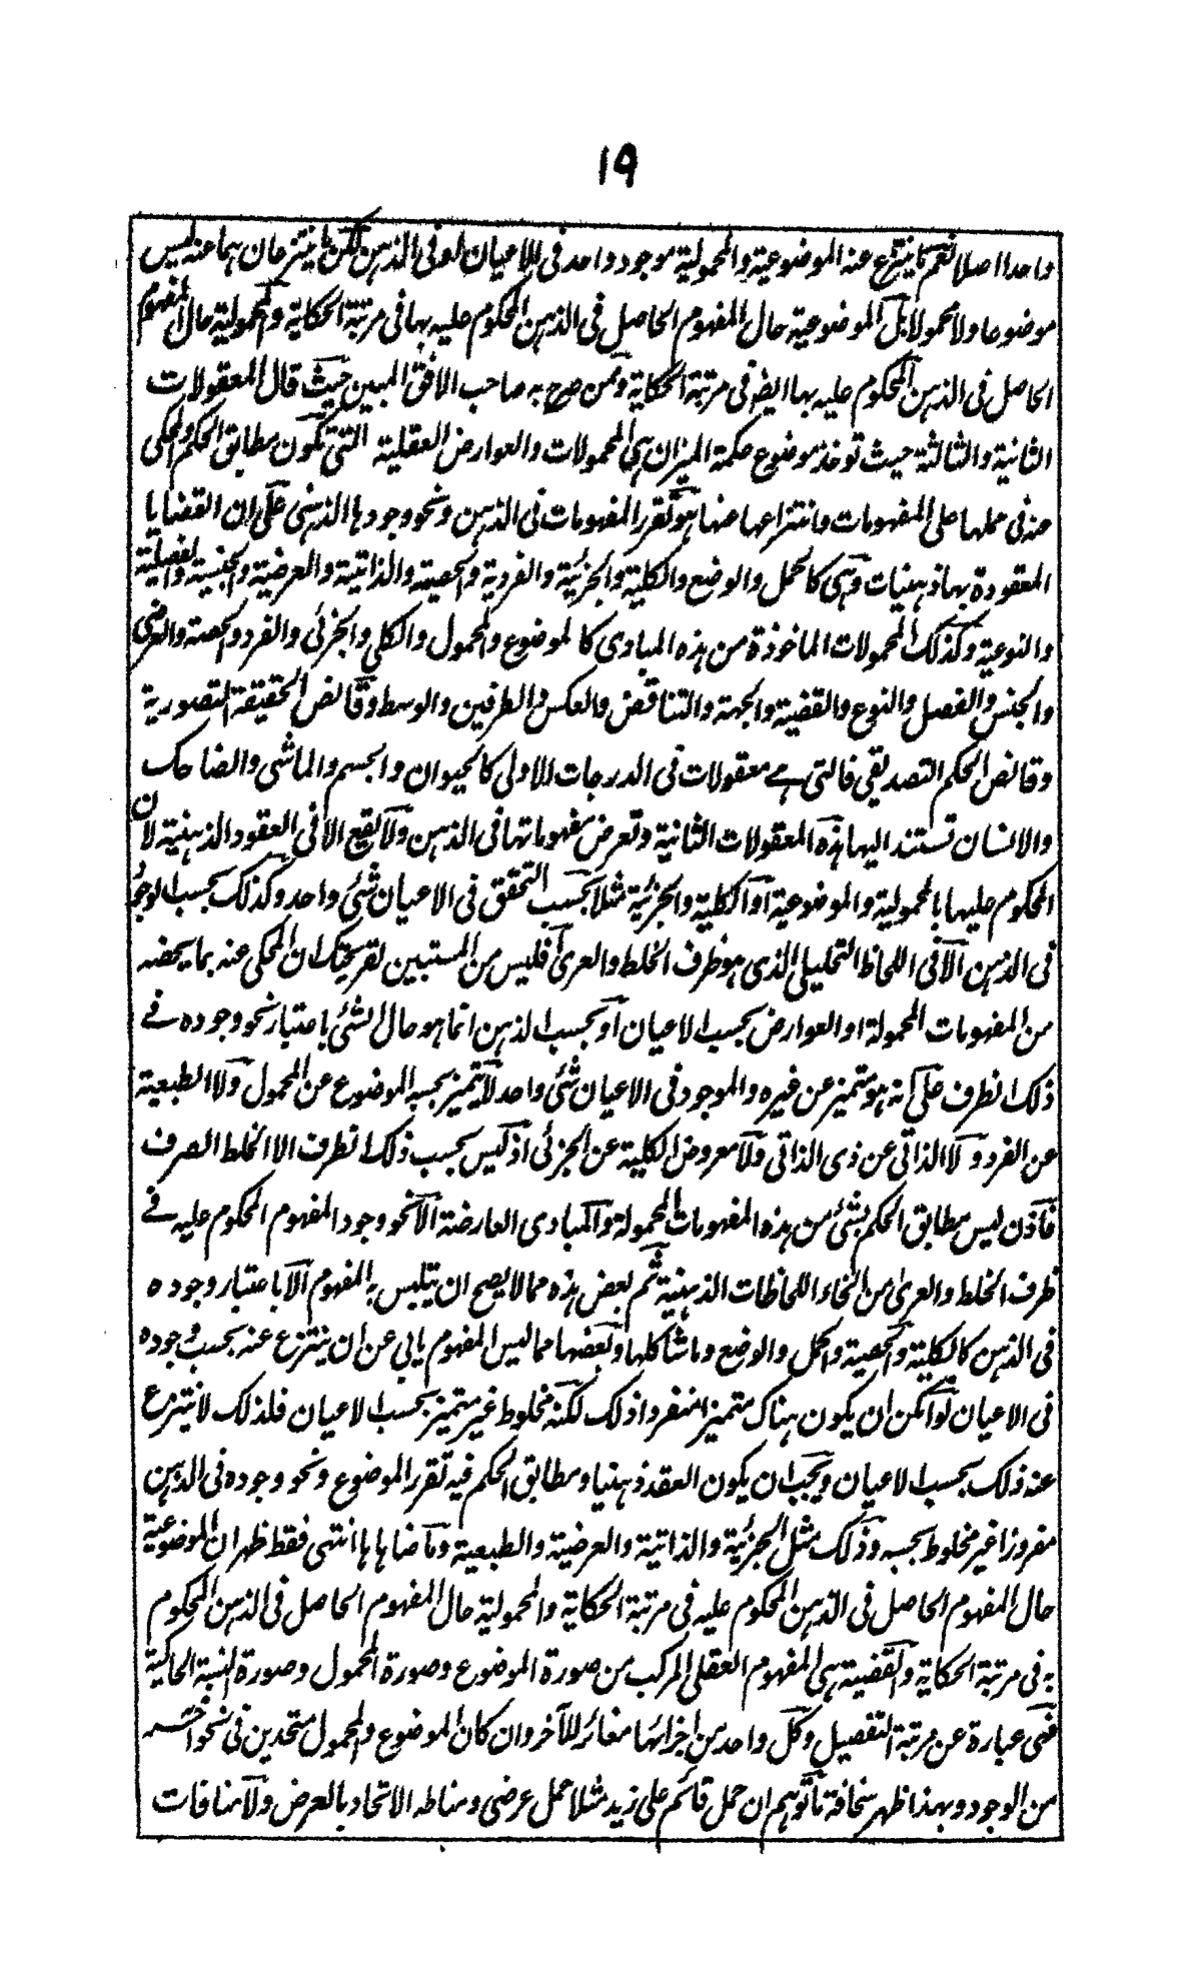 ١٩
واحدا اصلا نعم ما ينتزع عنه الموضوعية والمحمولية موجود واحد فى الاعيان او فى الذهن لكن ما ينتزعان هما عنه ليس
موضوعا ولا محمولا بل الموضوعية حال المفهوم الحاصل فى الذهن المحكوم عليه بها فى مرتبة الحكاية والمحمولية حال المفهوم
الحاصل فى الذهن المحكوم عليه بها ايضا فى مرتبة الحكاية وممن صرح به صاحب الافق المبين حيث قال المعقولات
الثانية والثالثة حيث توخذ موضوع حكمة الميزان هى المحمولات والعوارض العقلية التى تكون مطابق الحكم والمحكى
عنه فى حملها على المفهومات وانتزاعها عنها هو تقرر المفهومات فى الذهن ونحو وجودها الذهنى على ان القضايا
المعقودة بها ذهنيات وهى كالحمل والوضع والكلية والجزئية والفردية والحصية والذاتية والعرضية والجنسية والفصلية
والنوعية وكذلك المحمولات الماخوذة من هذه المبادى كالموضوع والمحمول والكلى والجزئى والفرد والحصة والعرضى
والجنس والفصل والنوع والقضية والجهة والتناقض والعكس والطرفين والوسط وقائض الحقيقة التصورية
وقائض الحكم التصديقى فالتى هى معقولات فى الدرجات الاولى كالحيوان والجسم والماشى والضاحك
والانسان تستند اليها هذه المعقولات الثانية وتعرض مفهوماتها فى الذهن ولا يقع الا فى العقود الذهنية لان
المحكوم عليها بالمحمولية والموضوعية او الكلية والجزئية مثلا بحسب التحقق فى الاعيان شئ واحد وكذلك بحسب الوجود
فى الذهن الا فى اللحاظ التحليلى الذى هو ظرف الخلط والعرى فليس من المستبين لقريحتك ان المحكى عنه بما يحضه
من المفهومات المحمولة او العوارض بحسب الاعيان او بحسب الذهن انما هو حال الشئ باعتبار نحو وجوده فے
ذلك الظرف على انه هو متميز عن غيره والموجود فى الاعيان شئ واحد لا يتميز بحسبه الموضوع عن المحمول ولا الطبعية
عن الفرد ولا الذاتى عن ذى الذاتى ولا معروض الكلية عن الجزئى اذ ليس بحسب ذلك الظرف الا الخلط الصرف
فاذن ليس مطابق الحكم بشئ من هذه المفهومات المحمولة والمبادى العارضة الا نحو وجود المفهوم المحكوم عليه فے
ظرف الخلط والعرى من انحاء اللحاظات الذهنية ثم بعض هذه مما لا يصح ان يتلبس به المفهوم الا باعتبار وجوده
فى الذهن كالكلية والحصية والحمل والوضع وما شاكلها وبعضها مما ليس المفهوم يابى عن ان ينتزع عنه بحسب وجوده
فى الاعيان لو امكن ان يكون هناك متميزا منفردا ذلك لكنه مخلوط غير متميز بحسب الاعيان فلذلك لا ينتزع
عنه ذلك بحسب الاعيان ويجب ان يكون العقد ذهنيا ومطابق الحكم فيه تقرر الموضوع ونحو وجوده فى الذهن
مفروزا غير مخلوط بحسبه وذلك مثل الجزئية والذاتية والعرضية والطبعية وما ضاهاها انتهى فقط ظهر ان الموضوعية
حال المفهوم الحاصل فى الذهن المحكوم عليه فى مرتبة الحكاية والمحمولية حال المفهوم الحاصل فى الذهن المحكوم
به فى مرتبة الحكاية والقضية هى المفهوم العقلى المركب من صورة الموضوع وصورة المحمول وصورة النسبة الحاكية
فهى عبارة عن مرتبة التفصيل وكل واحد من اجزائها مغائر للآخر وان كان الموضوع والمحمول متحدين فى نحو آخر
من الوجود وبهذا ظهر سخافة ما توهم ان حمل قائم على زيد مثلا حمل عرضى ومناطه الاتحاد بالعرض ولا منافات